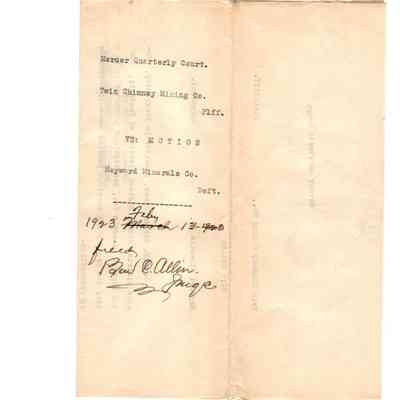 Mercer Quarterly Court.
Twin Chimney Mining Co.
Plff.
VS: MOTION
Hayward Minerals Co.
Deft.
Feby
1923 March 13-
filed
Ben C. Allin.
Judge